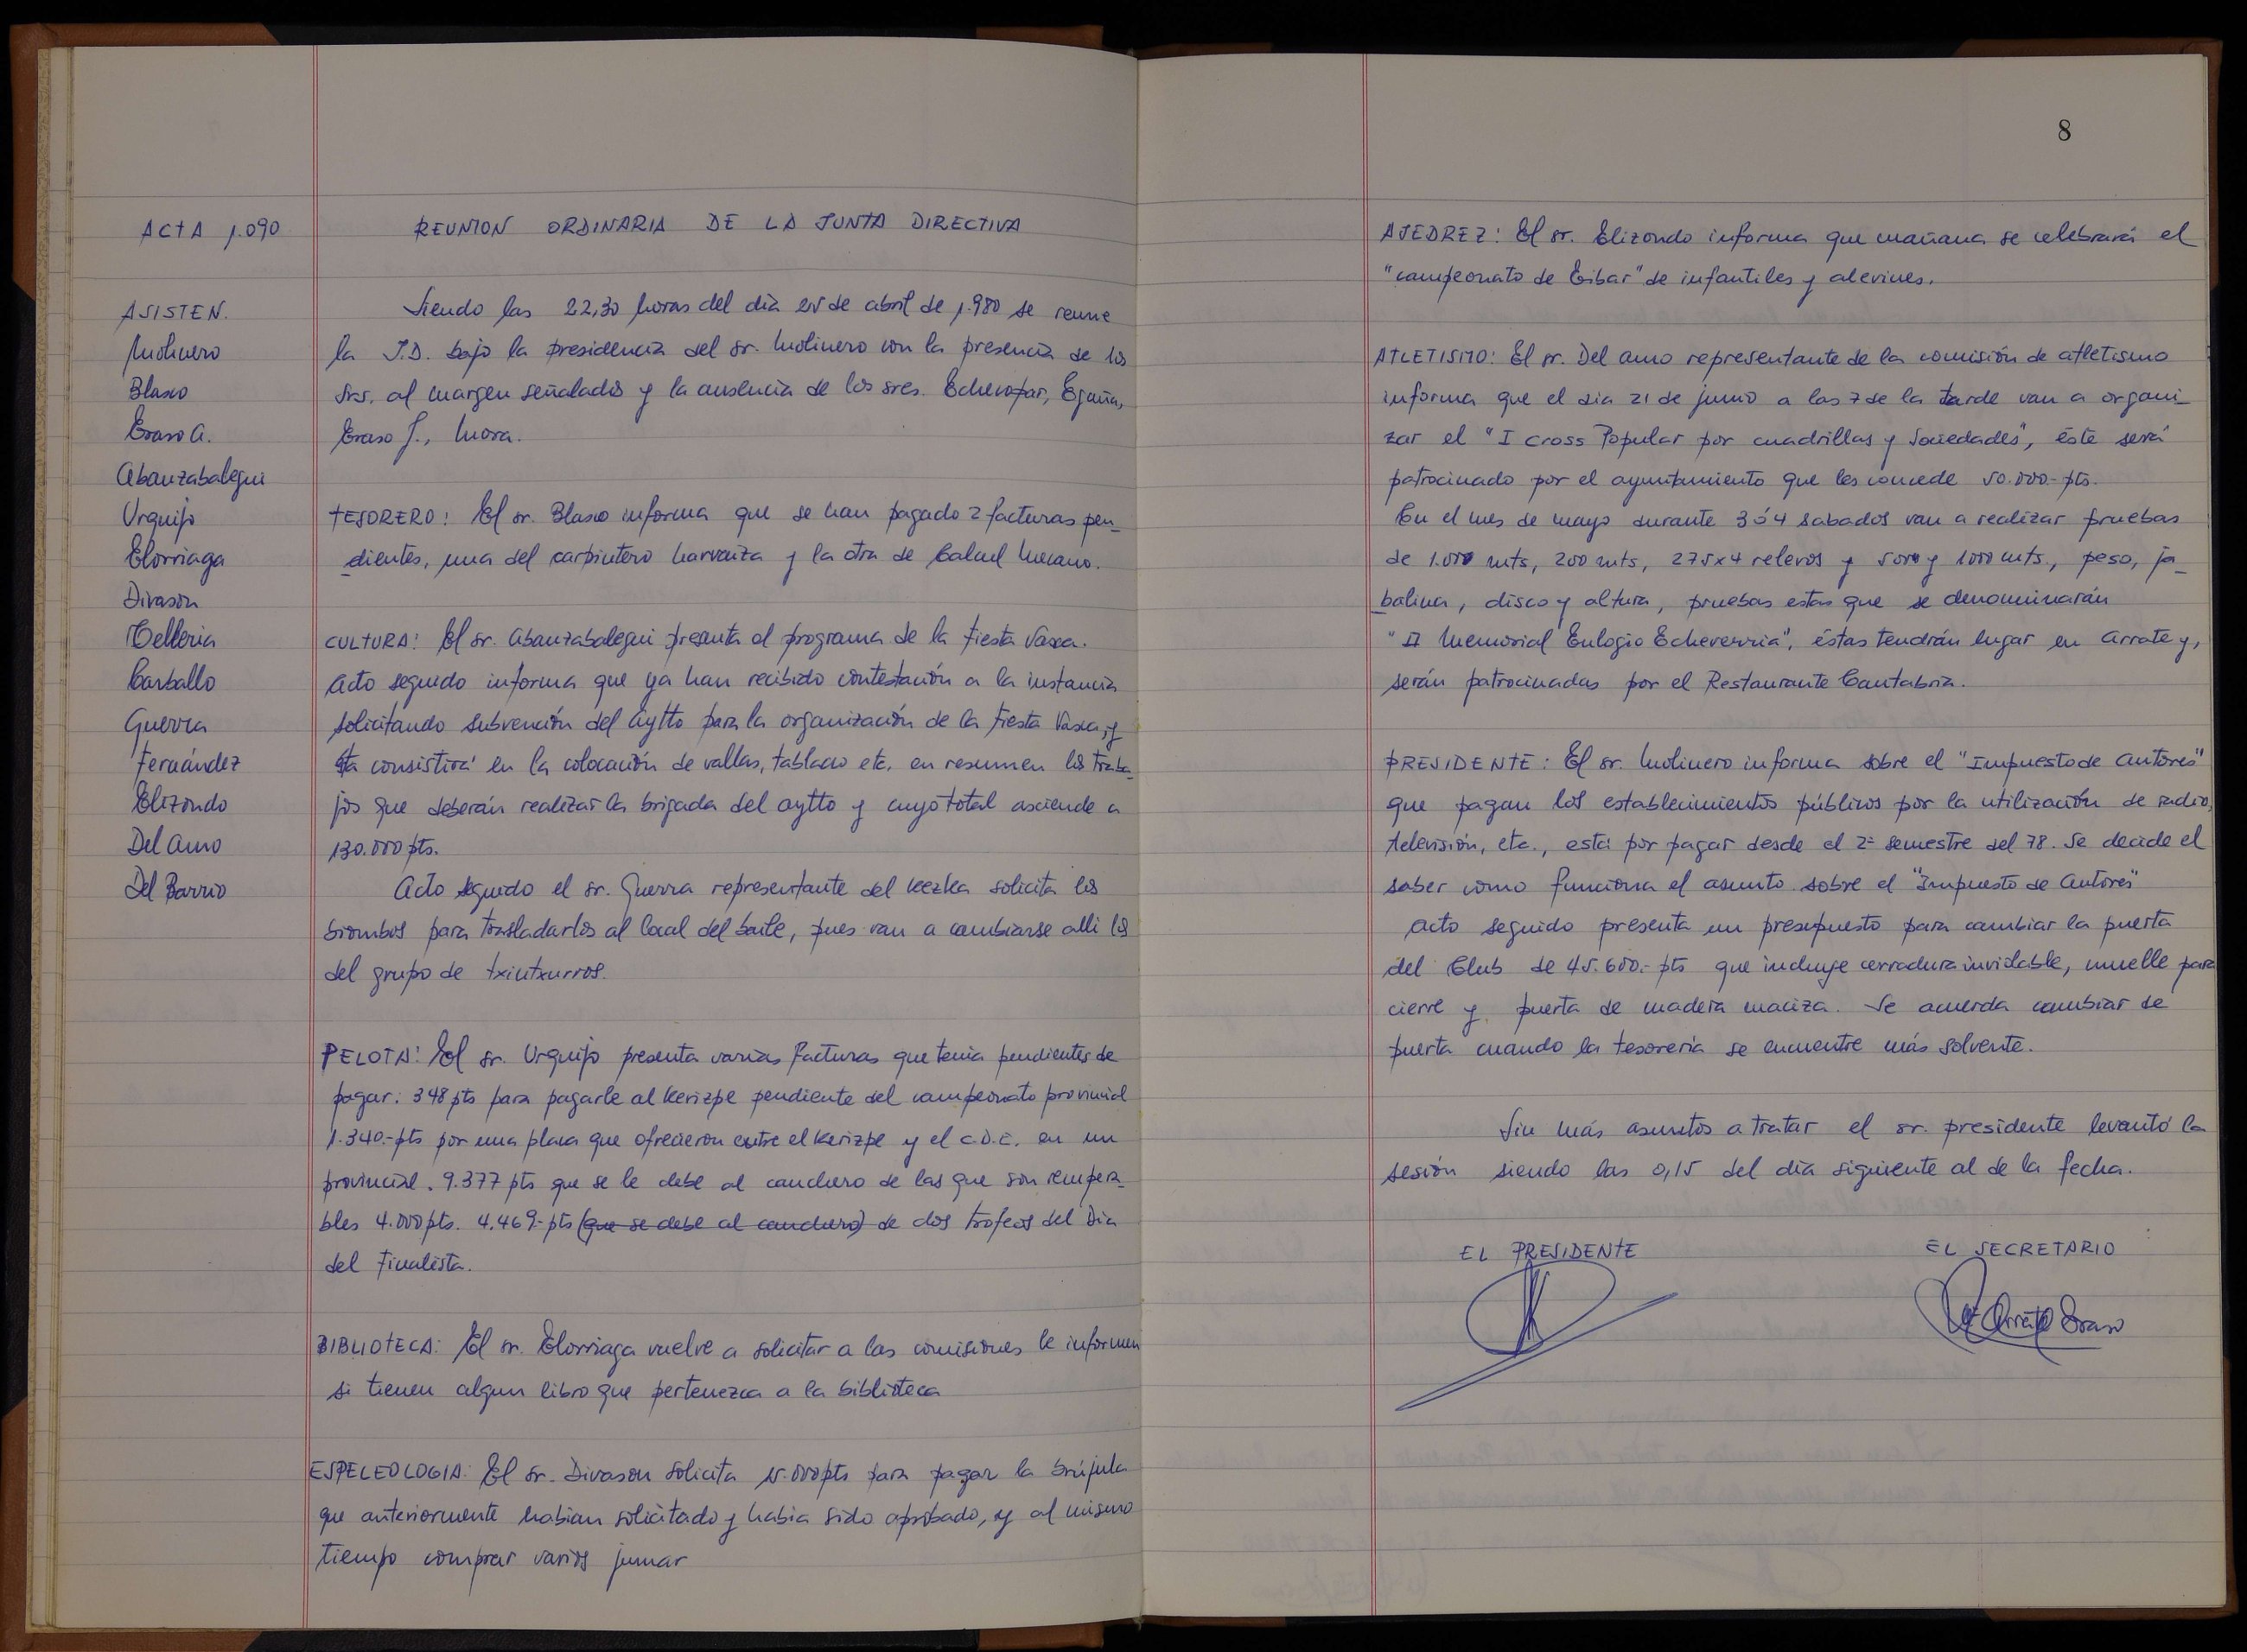 ACTA 1.090
REUNION ORDINARIA DE LA JUNTA DIRECTIVA
ASISTEN.
Molinero
Blasco
Eraso A.
Abanzabalegui
Urquijo
Elorriaga
Divasón
Telleria
Carballo
Guerra
Fernández
Elizondo
Del Amo
Del Barrio
Siendo las 22,30 horas del dia 25 de abril de 1.980 se reune
la J.D. bajo la presidencia del sr. Molinero con la presencia de los
Srs. al margen señalados y la ausencia de los sres. Echevapar, Egaña,
Eraso J., Mora.
TESORERO: El sr. Blasco informa que se han pagado 2 facturas pen_
_dientes, una del carpintero y la otra de
CULTURA: El sr. Abanzabalegui presenta el programa de la Fiesta Vasca.
Acto seguido informa que ya han recibido contestación a la instancia
solicitando subvención del Aytto para la organización de la Fiesta Vasca, y
ésta consistirá en la colocación de vallas, tablado etc. en resumen los traba_
jos que deberán realizar la brigada del aytto y cuyo total asciende a
130.000 pts.
Acto seguido el sr. Guerra representante del Kezka solicita los
biombos para trasladarlos al local del baile, pues van a cambiarse alli los
del grupo de txintxurros.
PELOTA: El sr. Urquijo presenta varias facturas que tenia pendientes de
pagar: 348 pts para pagarle al Kerizpe pendiente del campeonato provincial
1.340.-pts por una placa que ofrecieron entre el Kerizpe y el C.D.E. en un
provincial. 9.377 pts que se le debe al canchero de las que son recupera_
bles 4.000 pts. 4.469.-pts (que se debe al canchero) de dos trofeos del Dia
del Finalista.
BIBLIOTECA: El sr. Elorriaga vuelve a solicitar a las comisiones le informen
si tienen algun libro que pertenezca a la biblioteca
ESPELEOLOGIA: El sr. Divason solicita 15.000 pts para pagar la brújula
que anteriormente habian solicitado y habia sido aprobado, y al mismo
tiempo comprar varios jumar
8
AJEDREZ: El sr. Elizondo informa que mañana se celebrará el
"campeonato de Eibar" de infantiles y alevines.
ATLETISMO: El sr. Del Amo representante de la comisión de atletismo
informa que el dia 21 de junio a las 7 de la tarde van a organi_
zar el "I Cross Popular por cuadrillas y Sociedades", éste será
patrocinado por el ayuntamiento que les concede 50.000.-pts.
En el mes de mayo durante 3 ó 4 sabados van a realizar pruebas
de 1.000 mts, 200 mts, 275x4 relevos y 500 y 1000 mts., peso, ja_
_balina, disco y altura, pruebas estas que se denominarán
"II Memorial Eulogio Echeverria", éstas tendrán lugar en Arrate y,
serán patrocinadas por el Restaurante Cantabria.
PRESIDENTE: El sr. Molinero informa sobre el "Impuesto de Autores"
que pagan los establecimientos públicos por la utilización de radio,
televisión, etc., está por pagar desde el 2º semestre del 78. Se decide el
saber como funciona el asunto sobre el "Impuesto de Autores"
Acto seguido presenta un presupuesto para cambiar la puerta
del Club de 45.600.-pts que incluye cerradura inviolable, muelle para
cierre y puerta de madera maciza. Se acuerda cambiar de
puerta cuando la tesoreria se encuentre más solvente.
Sin más asuntos a tratar el sr. presidente levantó la
sesión siendo las 0,15 del dia siguiente al de la fecha.
EL PRESIDENTE
EL SECRETARIO
Arrate Eraso